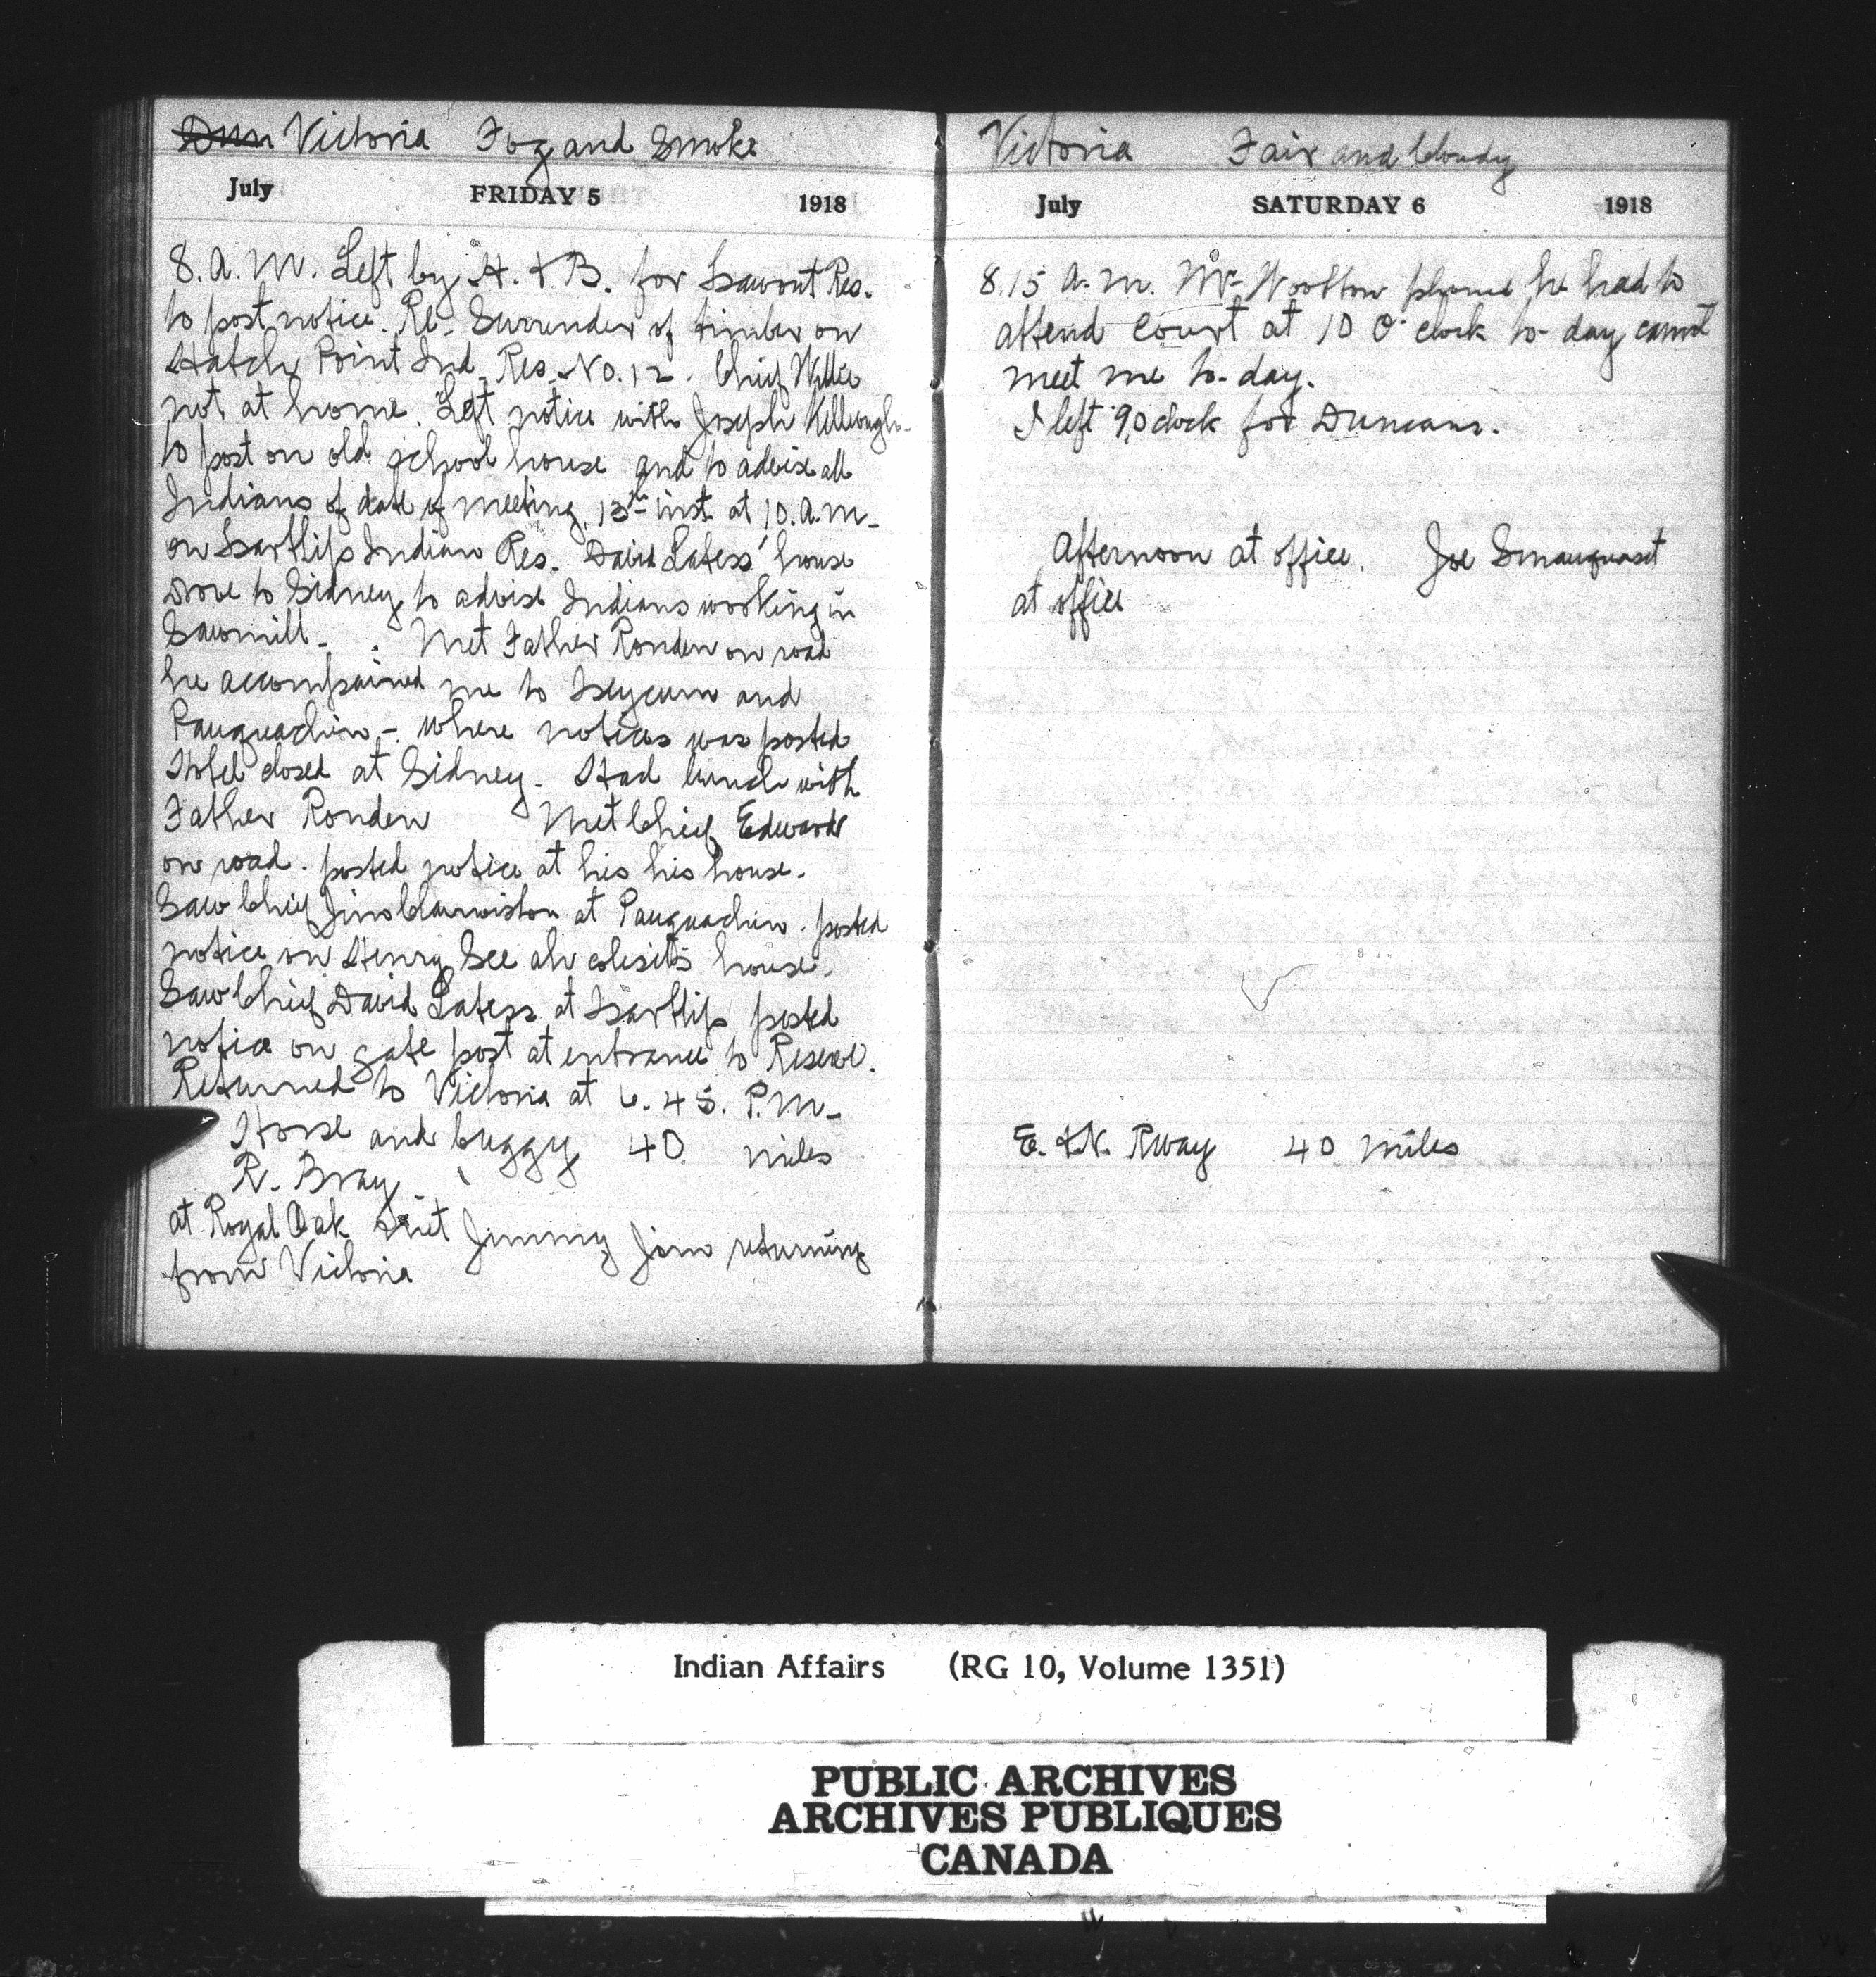 Dun Victoria Fog and Smoke
July FRIDAY 5 1918
8. A. M. Left by H. & B. for Tsawout Res.
to post notice. Re. Surrender of timber on
Hatch Point Ind. Res. No. 12. Chief Willie
not at home. Left notice with Joseph
to post on old school house and to advise all
Indians of date of meeting, 13th inst. at 10. A. M.
on Tsartlip Indian Res. David Latess' house
Drove to Sidney to advise Indians working in
Sawmill. Met Father Ronden on road
he accompained me to Tseycum and
Pauquachin - where notices was posted
Hotel closed at Sidney. Had lunch with
Father Ronden Met Chief Edward
on road. posted notice at his his house.
Saw Chief Jim at Pauquachin. posted
notice on Henry house.
Saw Chief David Latess at Tsartlip posted
notice on gate post at entrance to Reserve.
Returned to Victoria at 6. 45. P. M.
Horse and buggy 40 miles
R. Bray
at Royal Oak met Jimmy Jim returning
from Victoria
Victoria Fair and Cloudy
July SATURDAY 6 1918
8.15 A. M. Mr. Wootton phoned he had to
attend Court at 10 O'clock to-day cannot
meet me to-day.
I left 9, o clock for Duncans.
Afternoon at office. Joe
at office
E. & N. Rway 40 miles
Indian Affairs (RG 10, Volume 1351)
PUBLIC ARCHIVES
ARCHIVES PUBLIQUES
CANADA